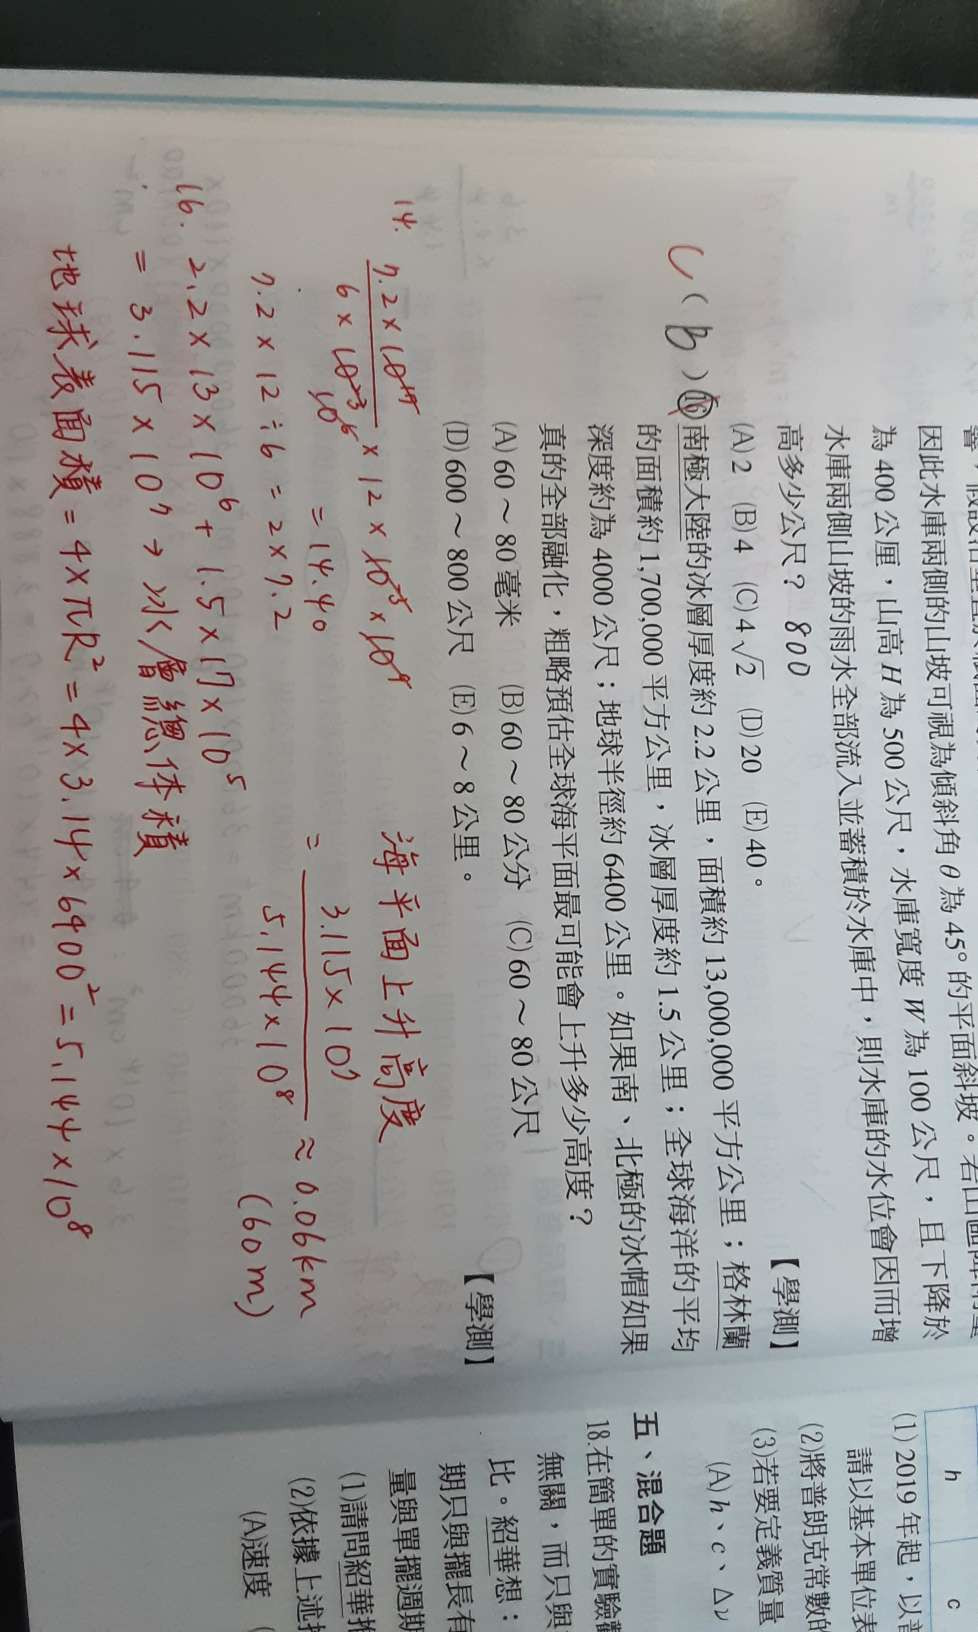 因此水庫兩側的山坡可視為傾斜角θ為45°的平面斜坡。若山區降的
為400公厘，山高H為500公尺，水庫寬度W為100公尺，且下降於
水庫兩側山坡的雨水全部流入並蓄積於水庫中，則水庫的水位會因而增
高多少公尺？ 800 【學測】
(A)2 (B)4 (C)4√2 (D)20 (E)40。
C ( B ) 16. 南極大陸的冰層厚度約2.2公里，面積約13,000,000平方公里；格林蘭
的面積約1,700,000平方公里，冰層厚度約1.5公里；全球海洋的平均
深度約為4000公尺；地球半徑約6400公里。如果南、北極的冰帽如果
真的全部融化，粗略預估全球海平面最可能會上升多少高度？
(A)60～80毫米 (B)60～80公分 (C)60～80公尺
(D)600～800公尺 (E)6～8公里。 【學測】
14.
= 14.40
7.2×12÷6=2×7.2
16. 2.2×13×10⁶+1.5×17×10⁵
= 3.115×10⁷→冰層總体積
地球表面積=4×πR²=4×3.14×6400²=5.144×10⁸
海平面上升高度
= 3.115×10⁷ / 5.144×10⁸ ≈ 0.06km
(60m)
h
c
(1)2019年起，以普
請以基本單位表
(2)將普朗克常數的
(3)若要定義質量
(A)h、c、Δν
五、混合題
18.在簡單的實驗
無關，而只與
比。紹華想：
期只與擺長有
量與單擺週期
(1)請問紹華推
(2)依據上述推
(A)速度